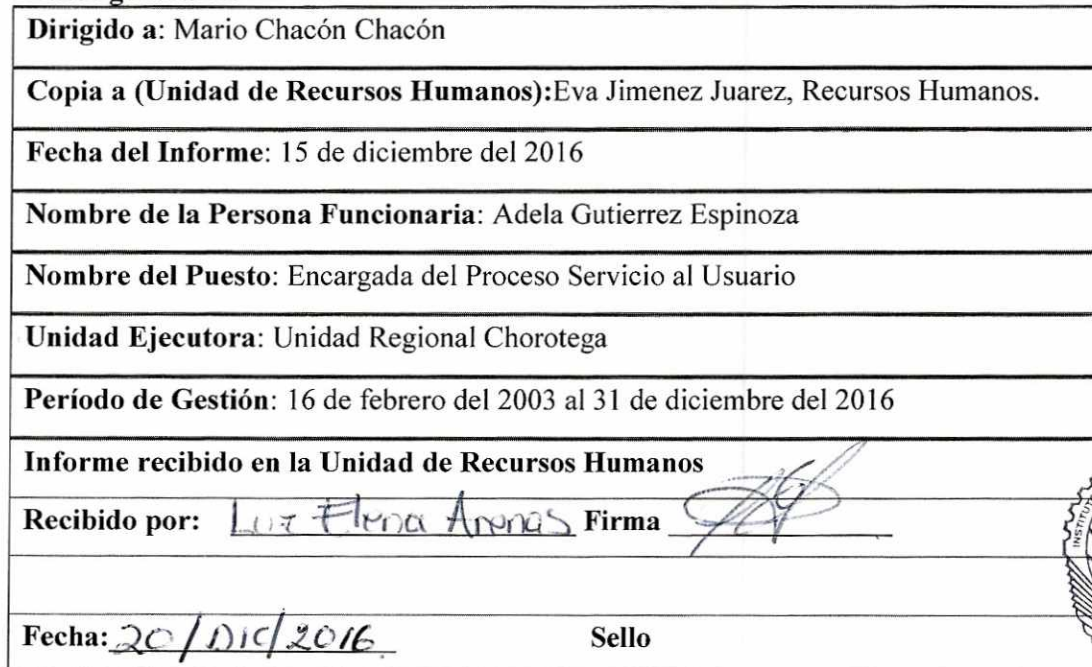 Dirigido a: Mario Chacón Chacón
Copia a (Unidad de Recursos Humanos):Eva Jimenez Juarez, Recursos Humanos.
Fecha del Informe: 15 de diciembre del 2016
Nombre de la Persona Funcionaria: Adela Gutierrez Espinoza
Nombre del Puesto: Encargada del Proceso Servicio al Usuario
Unidad Ejecutora: Unidad Regional Chorotega
Período de Gestión: 16 de febrero del 2003 al 31 de diciembre del 2016
Informe recibido en la Unidad de Recursos Humanos
Recibido por: Luz Elena Arenas Firma
Fecha: 20/DIC/2016 Sello